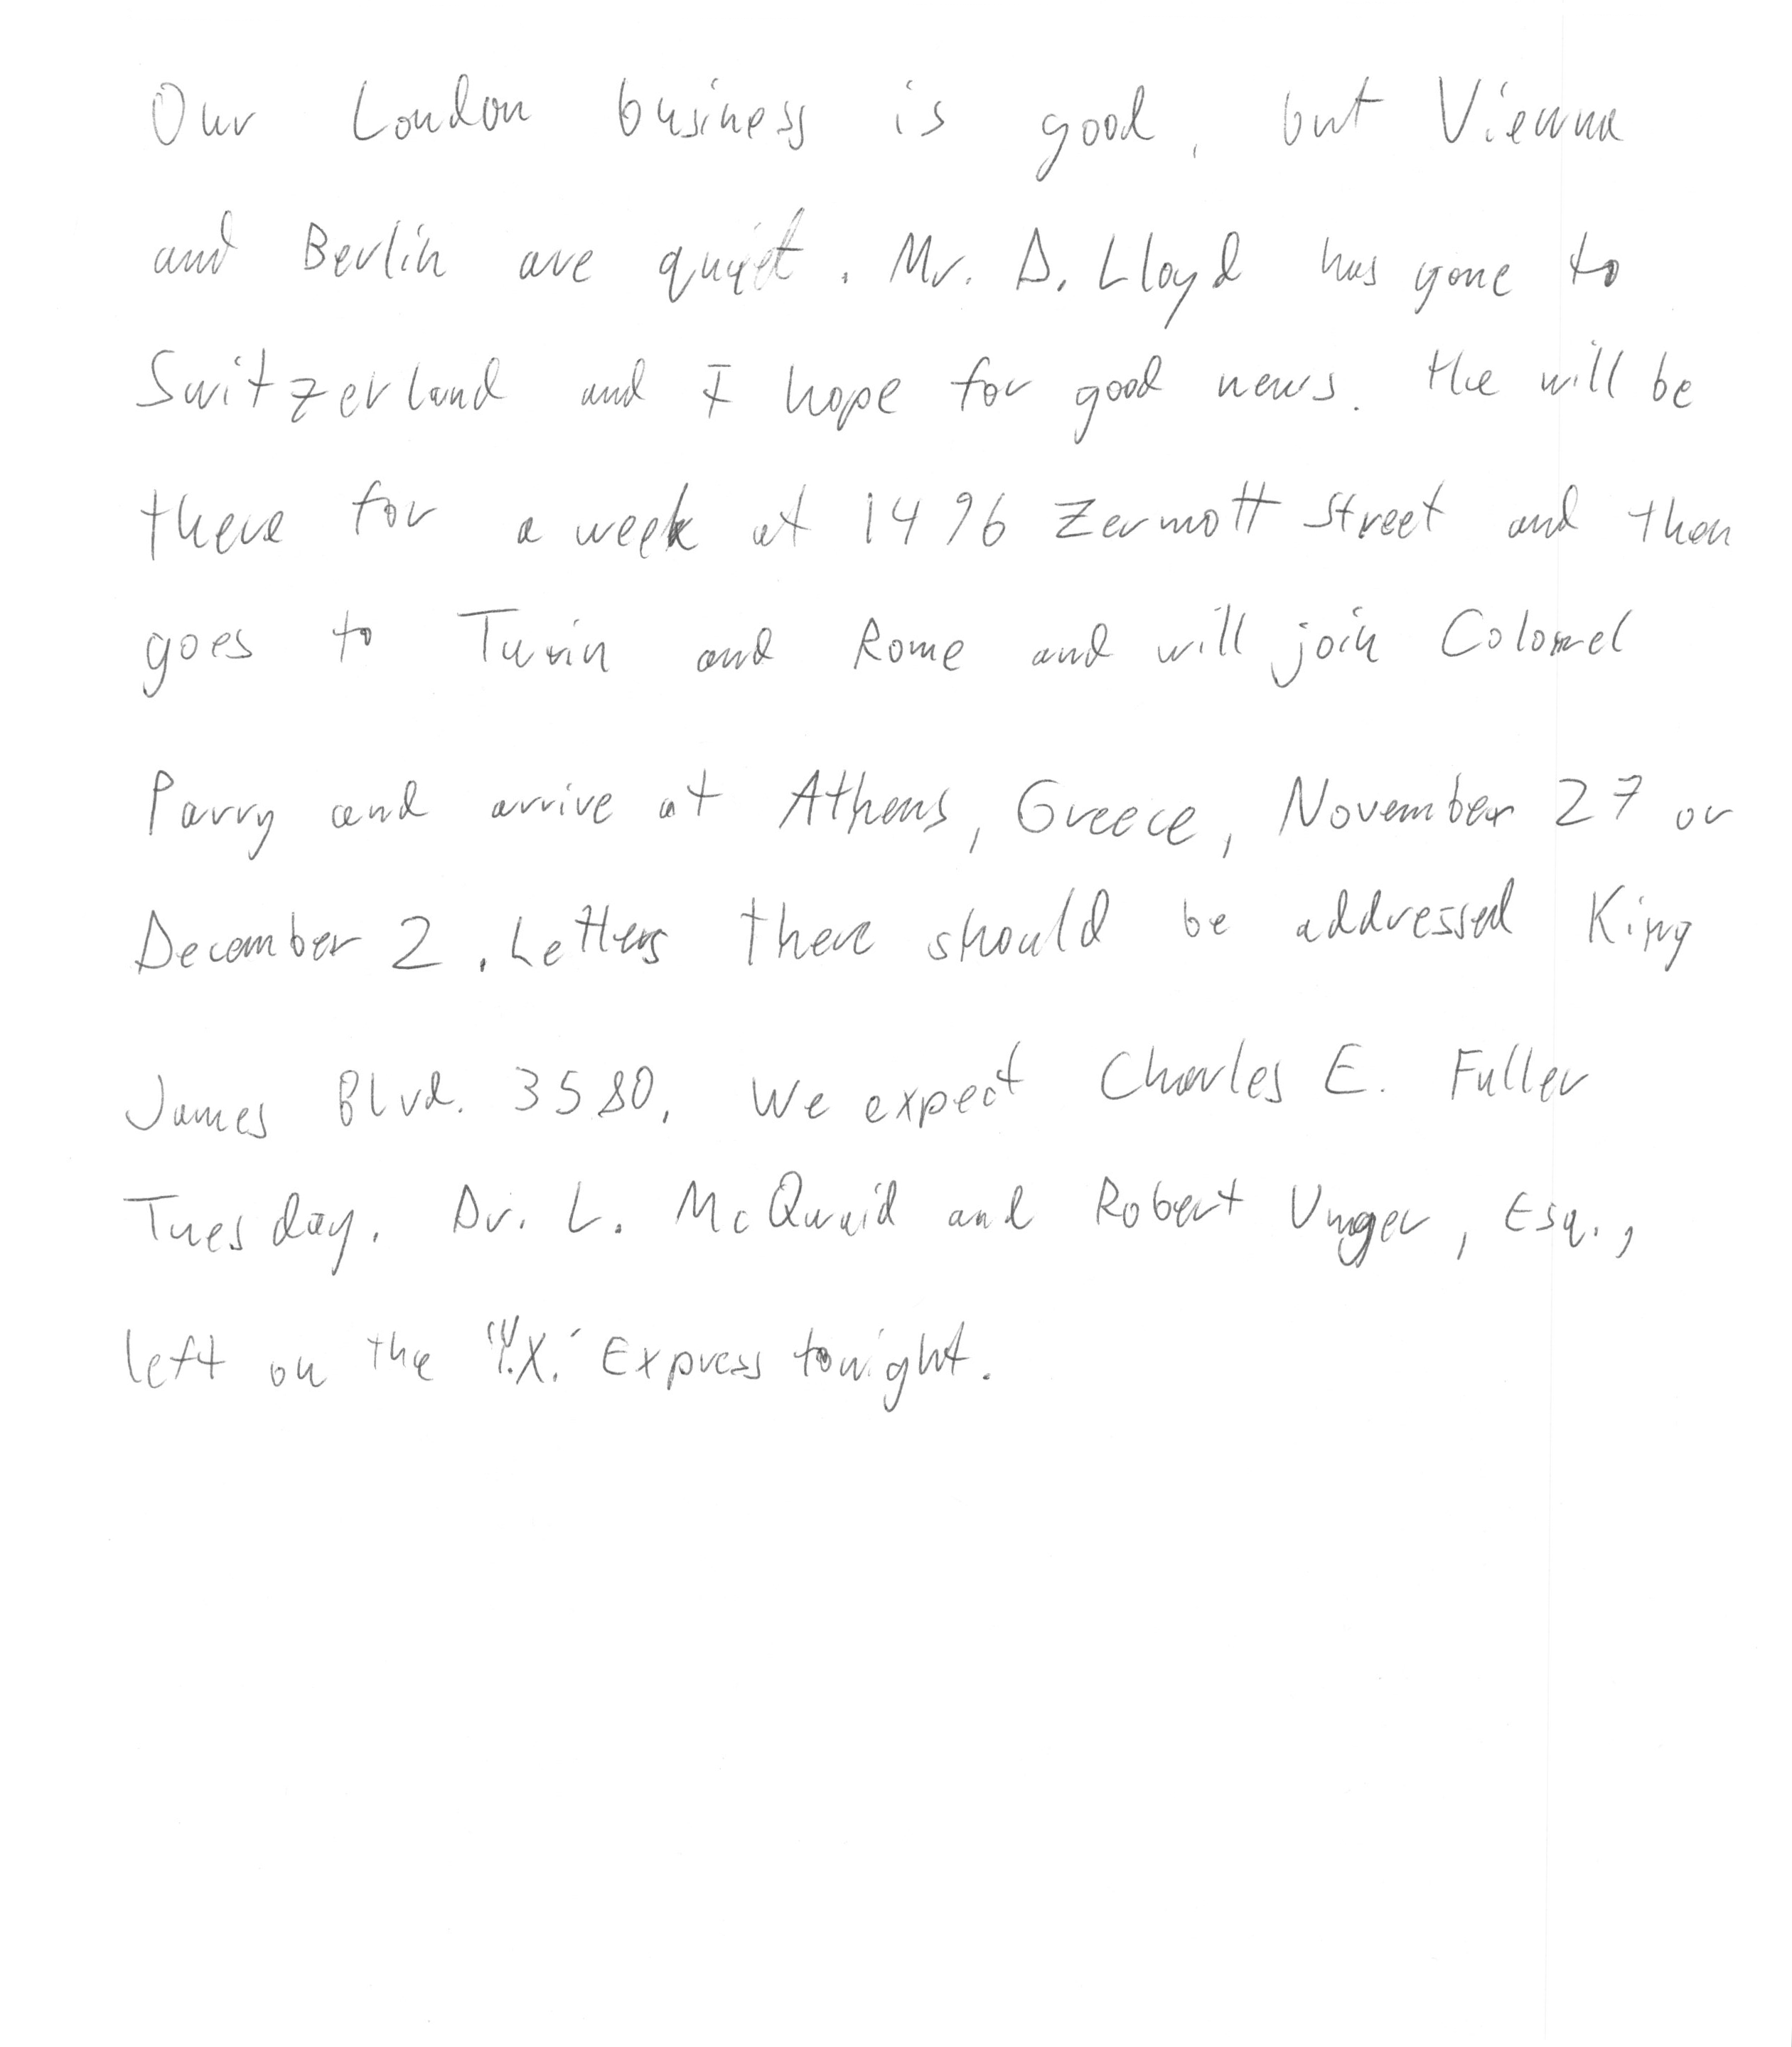 Our London business is good, but Vienna
and Berlin are quiet. Mr. D. Lloyd has gone to
Switzerland and I hope for good news. He will be
there for a week at 1496 Zermott Street and then
goes to Turin and Rome and will join Colonel
Parry and arrive at Athens, Greece, November 27 or
December 2. Letters there should be addressed King
James Blvd. 3580. We expect Charles E. Fuller
Tuesday. Dr. L. McQuaid and Robert Unger, Esq.,
left on the "Y.X." Express tonight.